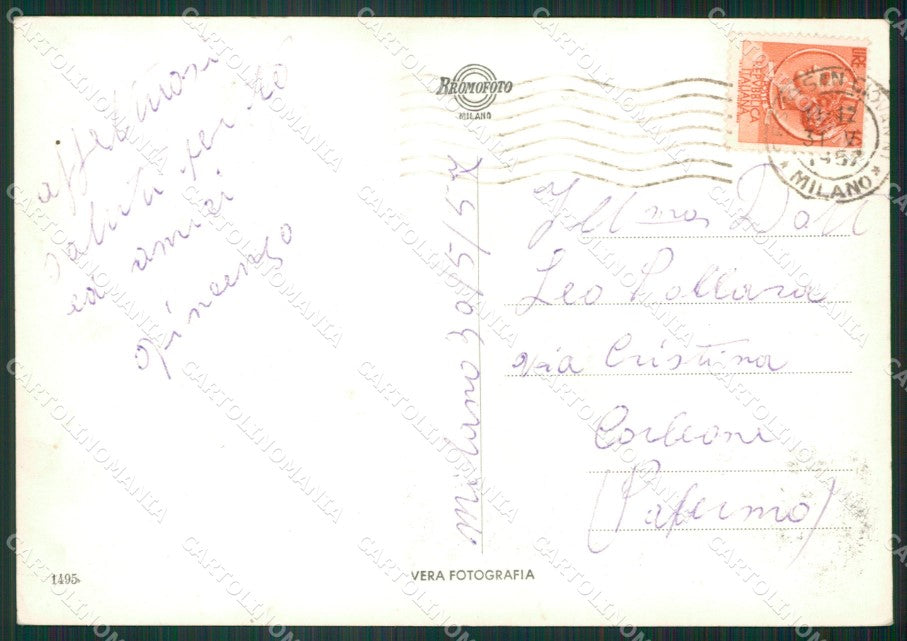 affettuosi
saluti per te
ed amici
Vincenzo
BROMOFOTO
MILANO
Milano 30/5/57
LIRE
REPVBBLICA
ITALIANA
31 V
1957
* MILANO *
Ill ma Dott
Leo Pollara
via Cristina
Corleone
(Palermo)
1495
VERA FOTOGRAFIA
CARTOLINOMANIA